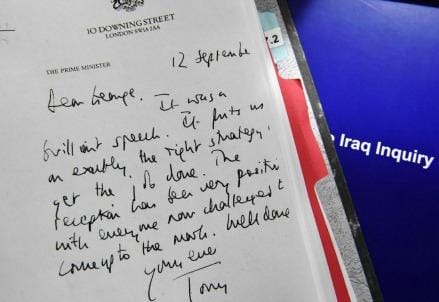 10 DOWNING STREET
LONDON SW1A 2AA
THE PRIME MINISTER
12 September
Dear George.
It was a
brilliant speech. It puts us
on exactly the right strategy
get the job done. The
reception has been very positive
with everyone now challenged to
come up to the mark. Well done
Yours ever
Tony
7.2
Iraq Inquiry